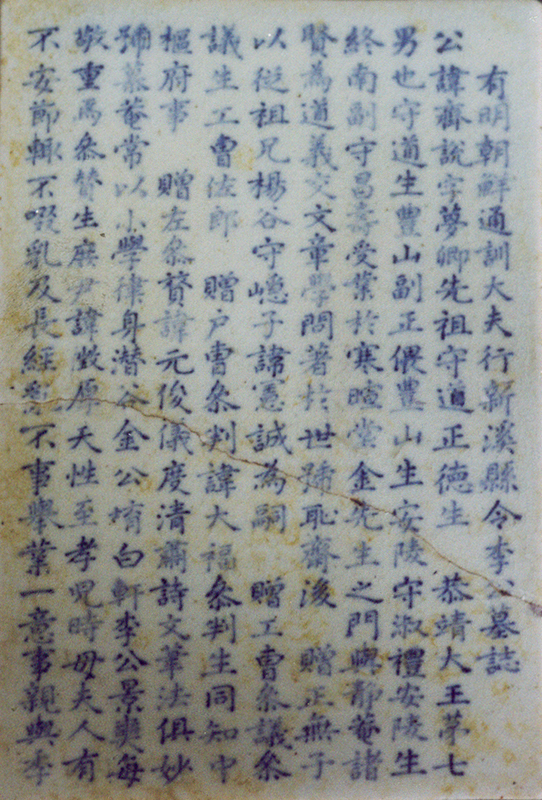 有明朝鮮通訓大夫行新溪縣令李公墓誌
公諱齊說字夢卿先祖守道正德生 恭靖大王苐七
男也守道生豊山副正偎豊山生安陵守淑禮安陵生
終南副守昌壽受業於寒暄堂 金先生之門與靜菴諸
賢為道義交文章學問著於世號恥齋後 贈正無子
以從祖兄楊谷守子諱憲誠為嗣 贈工曹叅議叅
議生工曹佐郎 贈户曹叅判諱大福叅判生同知中
樞府事 贈左叅贊諱元俊儀度清肅詩文筆法俱妙
號慕菴常以小學律身潜谷金公堉白軒李公景奭每
敬重焉叅贊生庶尹諱厚天性至孝兒時母夫人有
不安節輒不啜乳及長經亂不事舉業一意事親與李